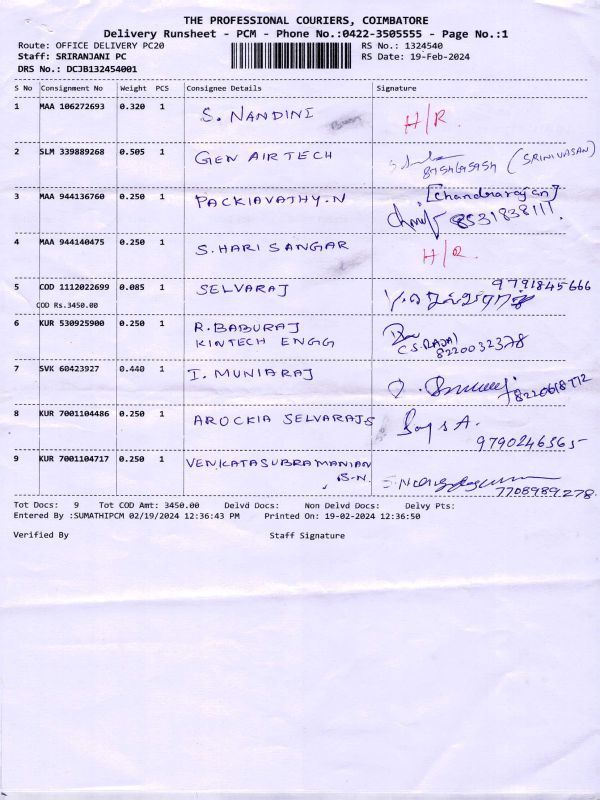 THE PROFESSIONAL COURIERS, COIMBATORE
Delivery Runsheet - PCM - Phone No.:0422-3505555 - Page No.:1
Route: OFFICE DELIVERY PC20 RS No.: 1324540
Staff: SRIRANJANI PC RS Date: 19-Feb-2024
DRS No.: DCJB132454001
S No Consignment No Weight PCS Consignee Details Signature
1 MAA 106272693 0.320 1 S. NANDINI H/R.
2 SLM 339889268 0.505 1 GEN AIRTECH (SRINIVASAN)
3 MAA 944136760 0.250 1 PACKIAVATHY.N [Chandrarajan]
8531838111.
4 MAA 944140475 0.250 1 S. HARI SANGAR H/R.
5 COD 1112022699 0.085 1 SELVARAJ 9791845666
COD Rs.3450.00
6 KUR 530925900 0.250 1 R. BABURAJ
KINTECH ENGG (S.RAJA)
8220032378
7 SVK 60423927 0.440 1 I. MUNIARAJ
8 KUR 7001104486 0.250 1 AROCKIA SELVARAJ S
9790246565
9 KUR 7001104717 0.250 1 VENKATASUBRAMANIAN
S.N. 7708989278.
Tot Docs: 9 Tot COD Amt: 3450.00 Delvd Docs: Non Delvd Docs: Delvy Pts:
Entered By :SUMATHIPCM 02/19/2024 12:36:43 PM Printed On: 19-02-2024 12:36:50
Verified By Staff Signature